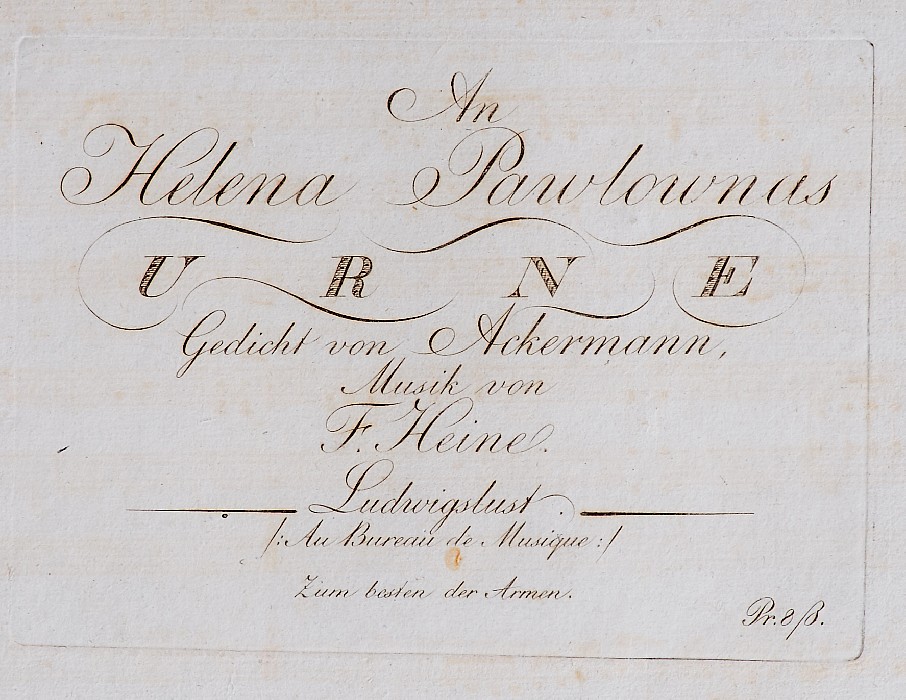 An
Helena Pawlownas
URNE
Gedicht von Ackermann,
Musik von
F. Heine.
Ludwigslust.
/: Au Bureaü de Musique :/
Züm besten der Armen.
Pr. 8 ß.